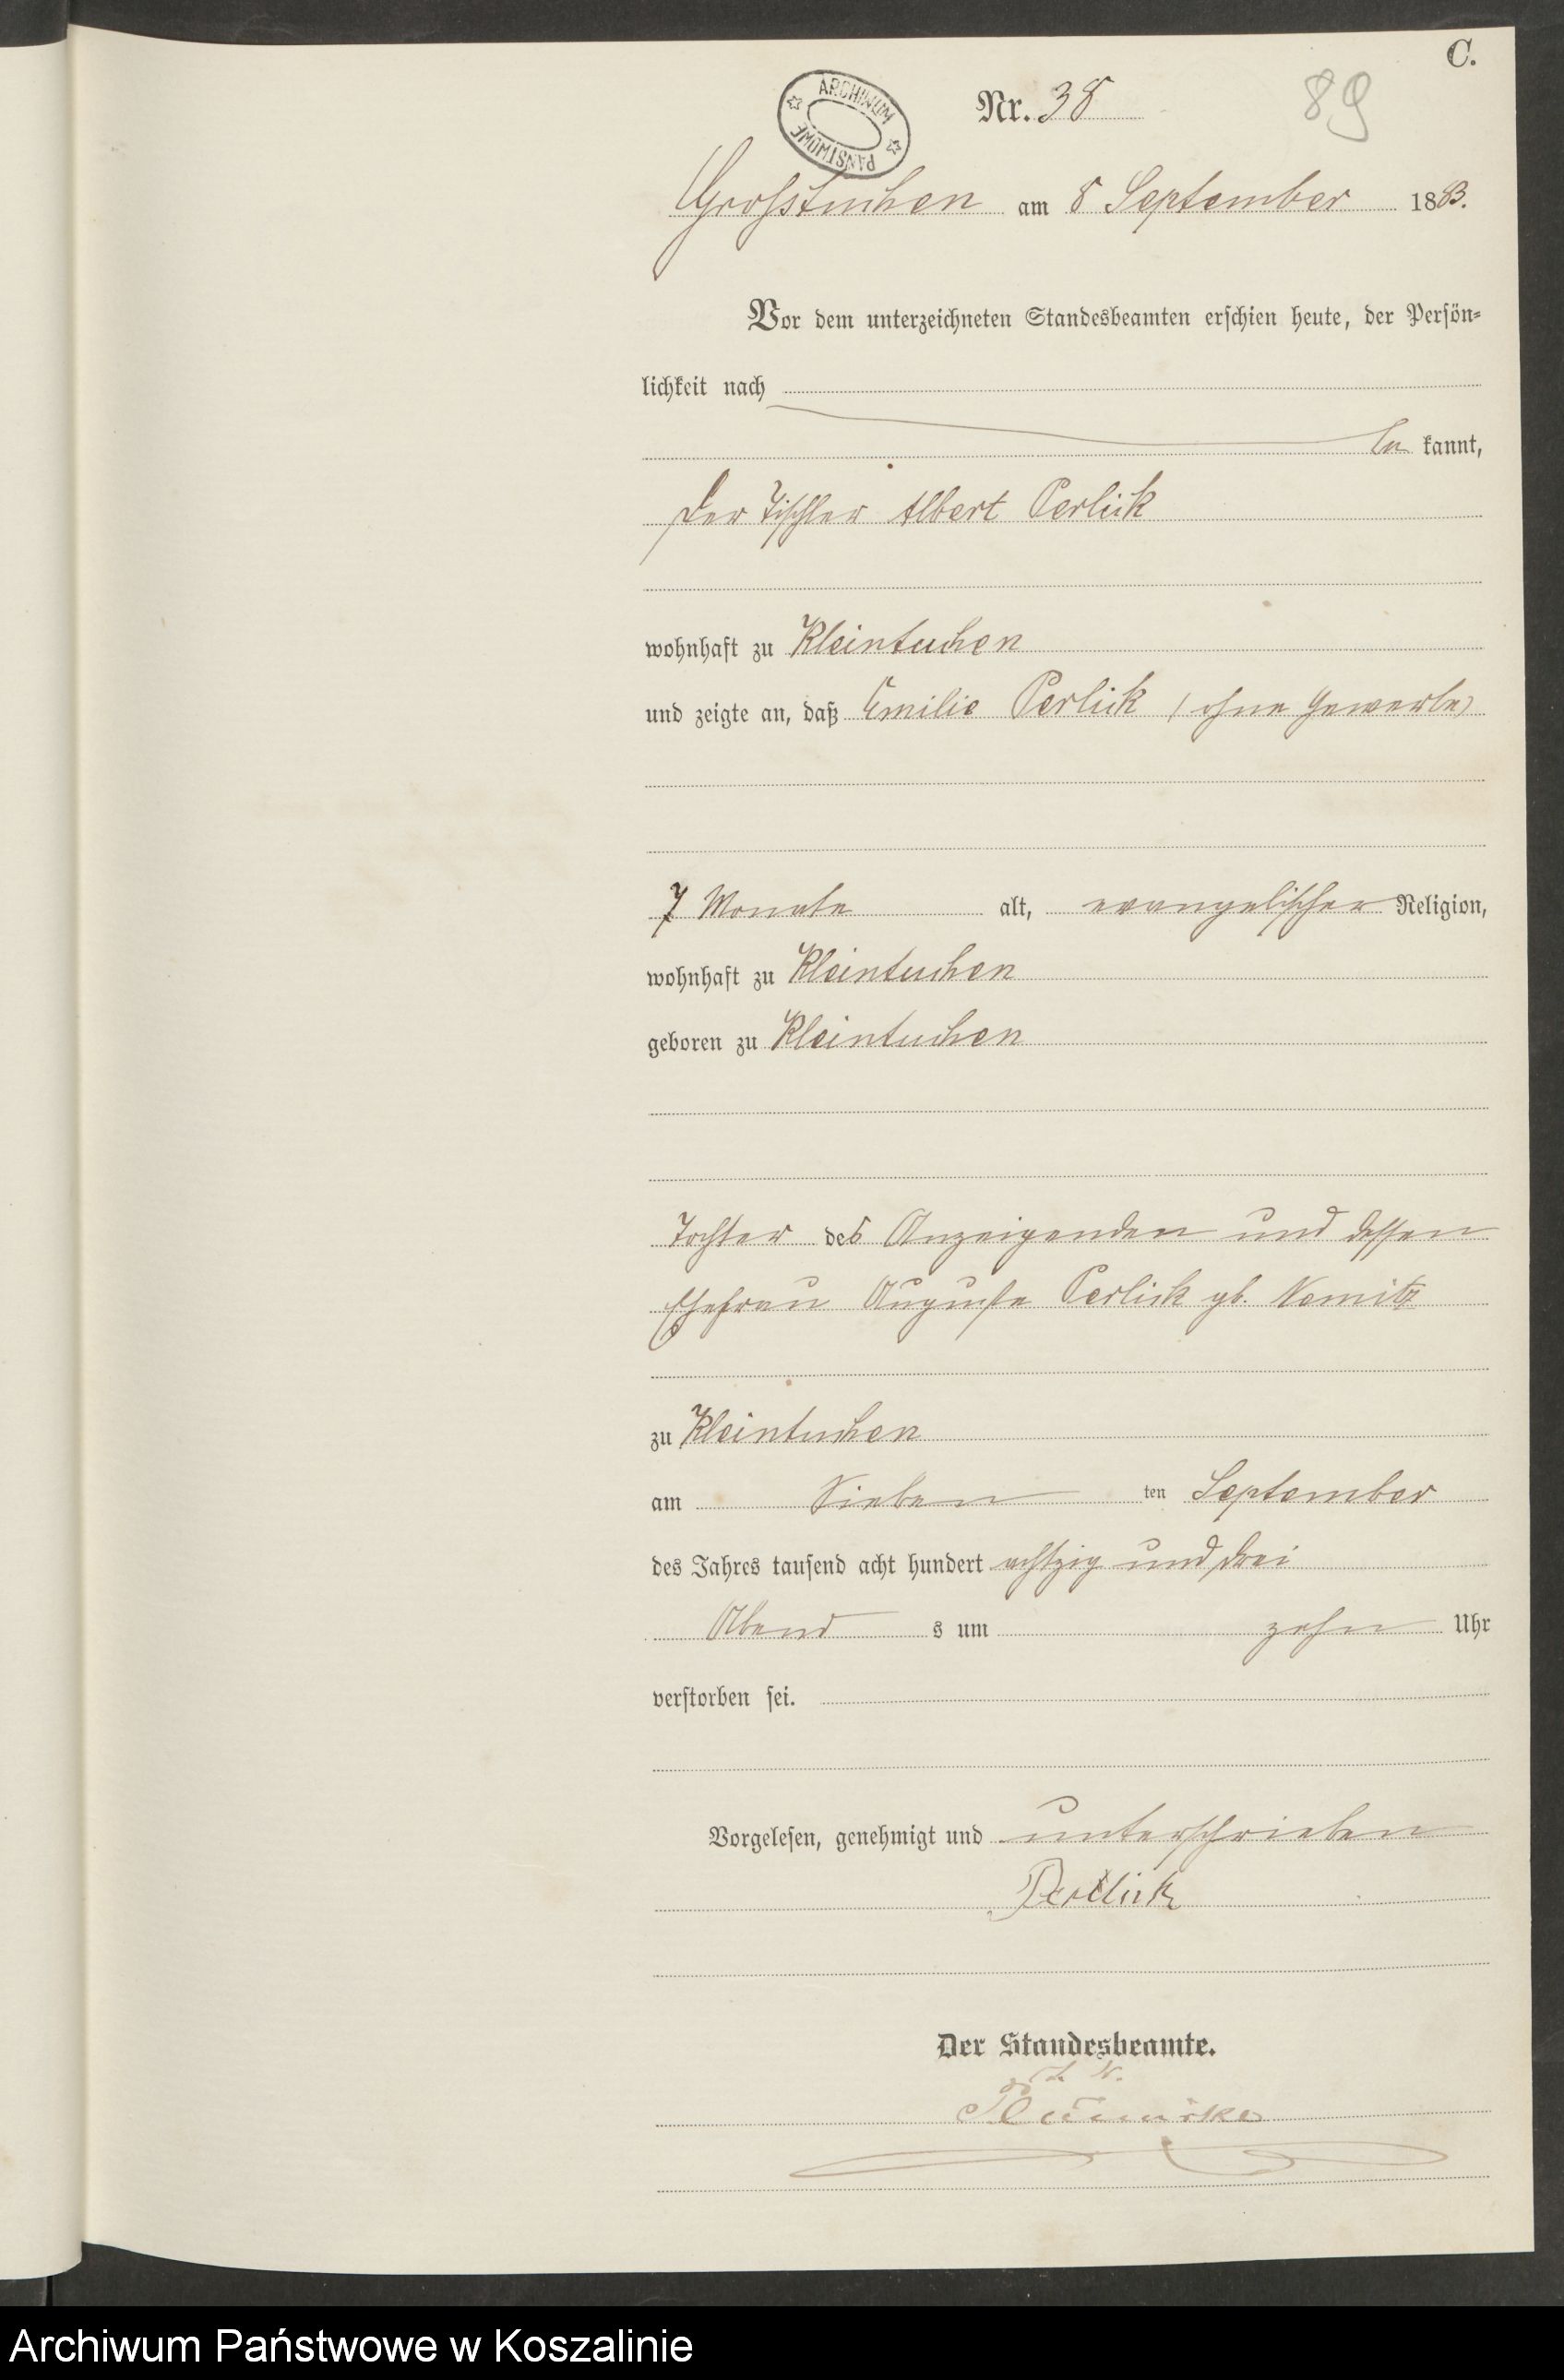 C.
ARCHIWUM PAŃSTWOWE
Nr. 38
89
Großtuchen am 8 September 1883.
Vor dem unterzeichneten Standesbeamten erschien heute, der Persön-
lichkeit nach
be kannt,
der Tischler Albert Perlick
wohnhaft zu Kleintuchen
und zeigte an, daß Emilie Perlick (ohne Gewerbe)
7 Monate alt, evangelischer Religion,
wohnhaft zu Kleintuchen
geboren zu Kleintuchen
Tochter des Anzeigenden und dessen
Ehefrau Auguste Perlick gb. Nemitz
zu Kleintuchen
am Sieben ten September
des Jahres tausend acht hundert achtzig und drei
Abend s um zehn Uhr
verstorben sei.
Vorgelesen, genehmigt und unterschrieben
Perlick
Der Standesbeamte.
Archiwum Państwowe w Koszalinie